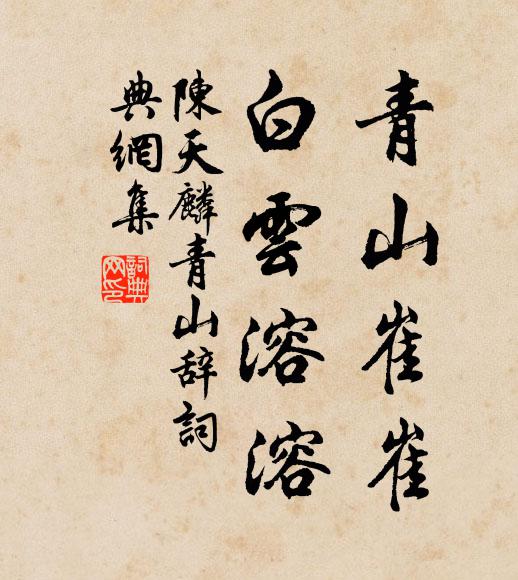 青山崔崔
白雲溶溶
陳天麟青山辞詞
典網集
詞典
网印